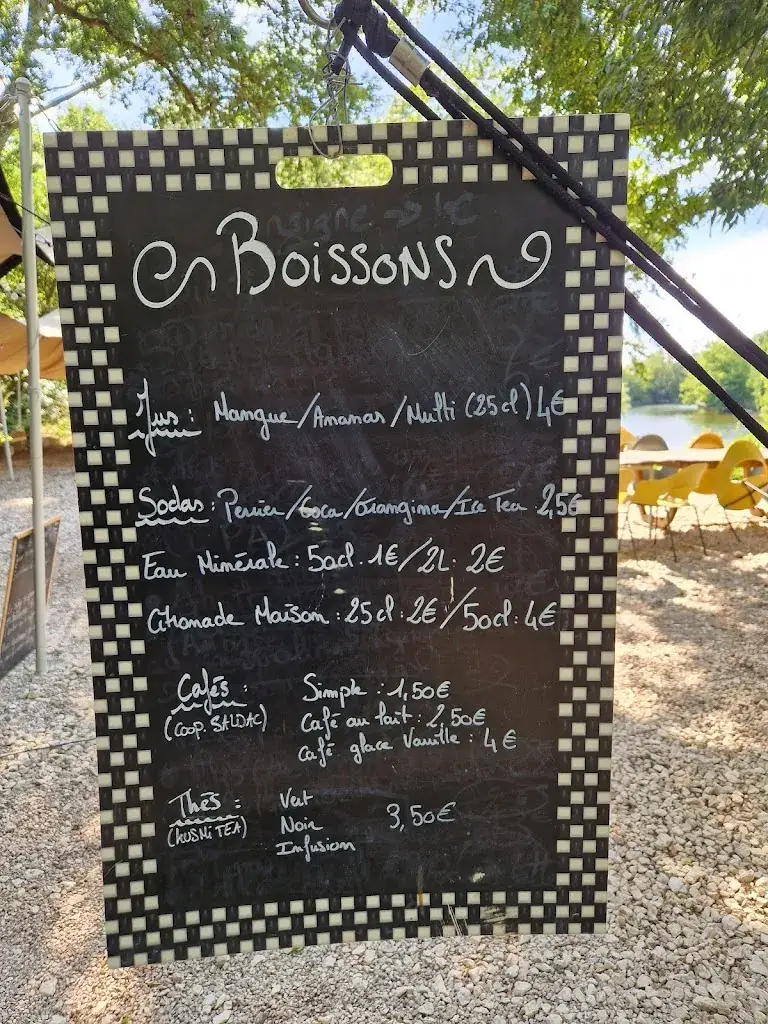 Boissons
Jus : Mangue/Ananas/Multi (25cl) 4€
Sodas : Perrier/Coca/Orangina/Ice Tea 2,5€
Eau Minérale : 50cl. 1€/2L. 2€
Citronade Maison : 25cl : 2€/50cl : 4€
Cafés : Simple : 1,50€
(COOP. SALDAC) Café au lait : 2,50€
Café glacé Vanille : 4€
Thés : Vert
(KUSMI TEA) Noir 3,50€
Infusion